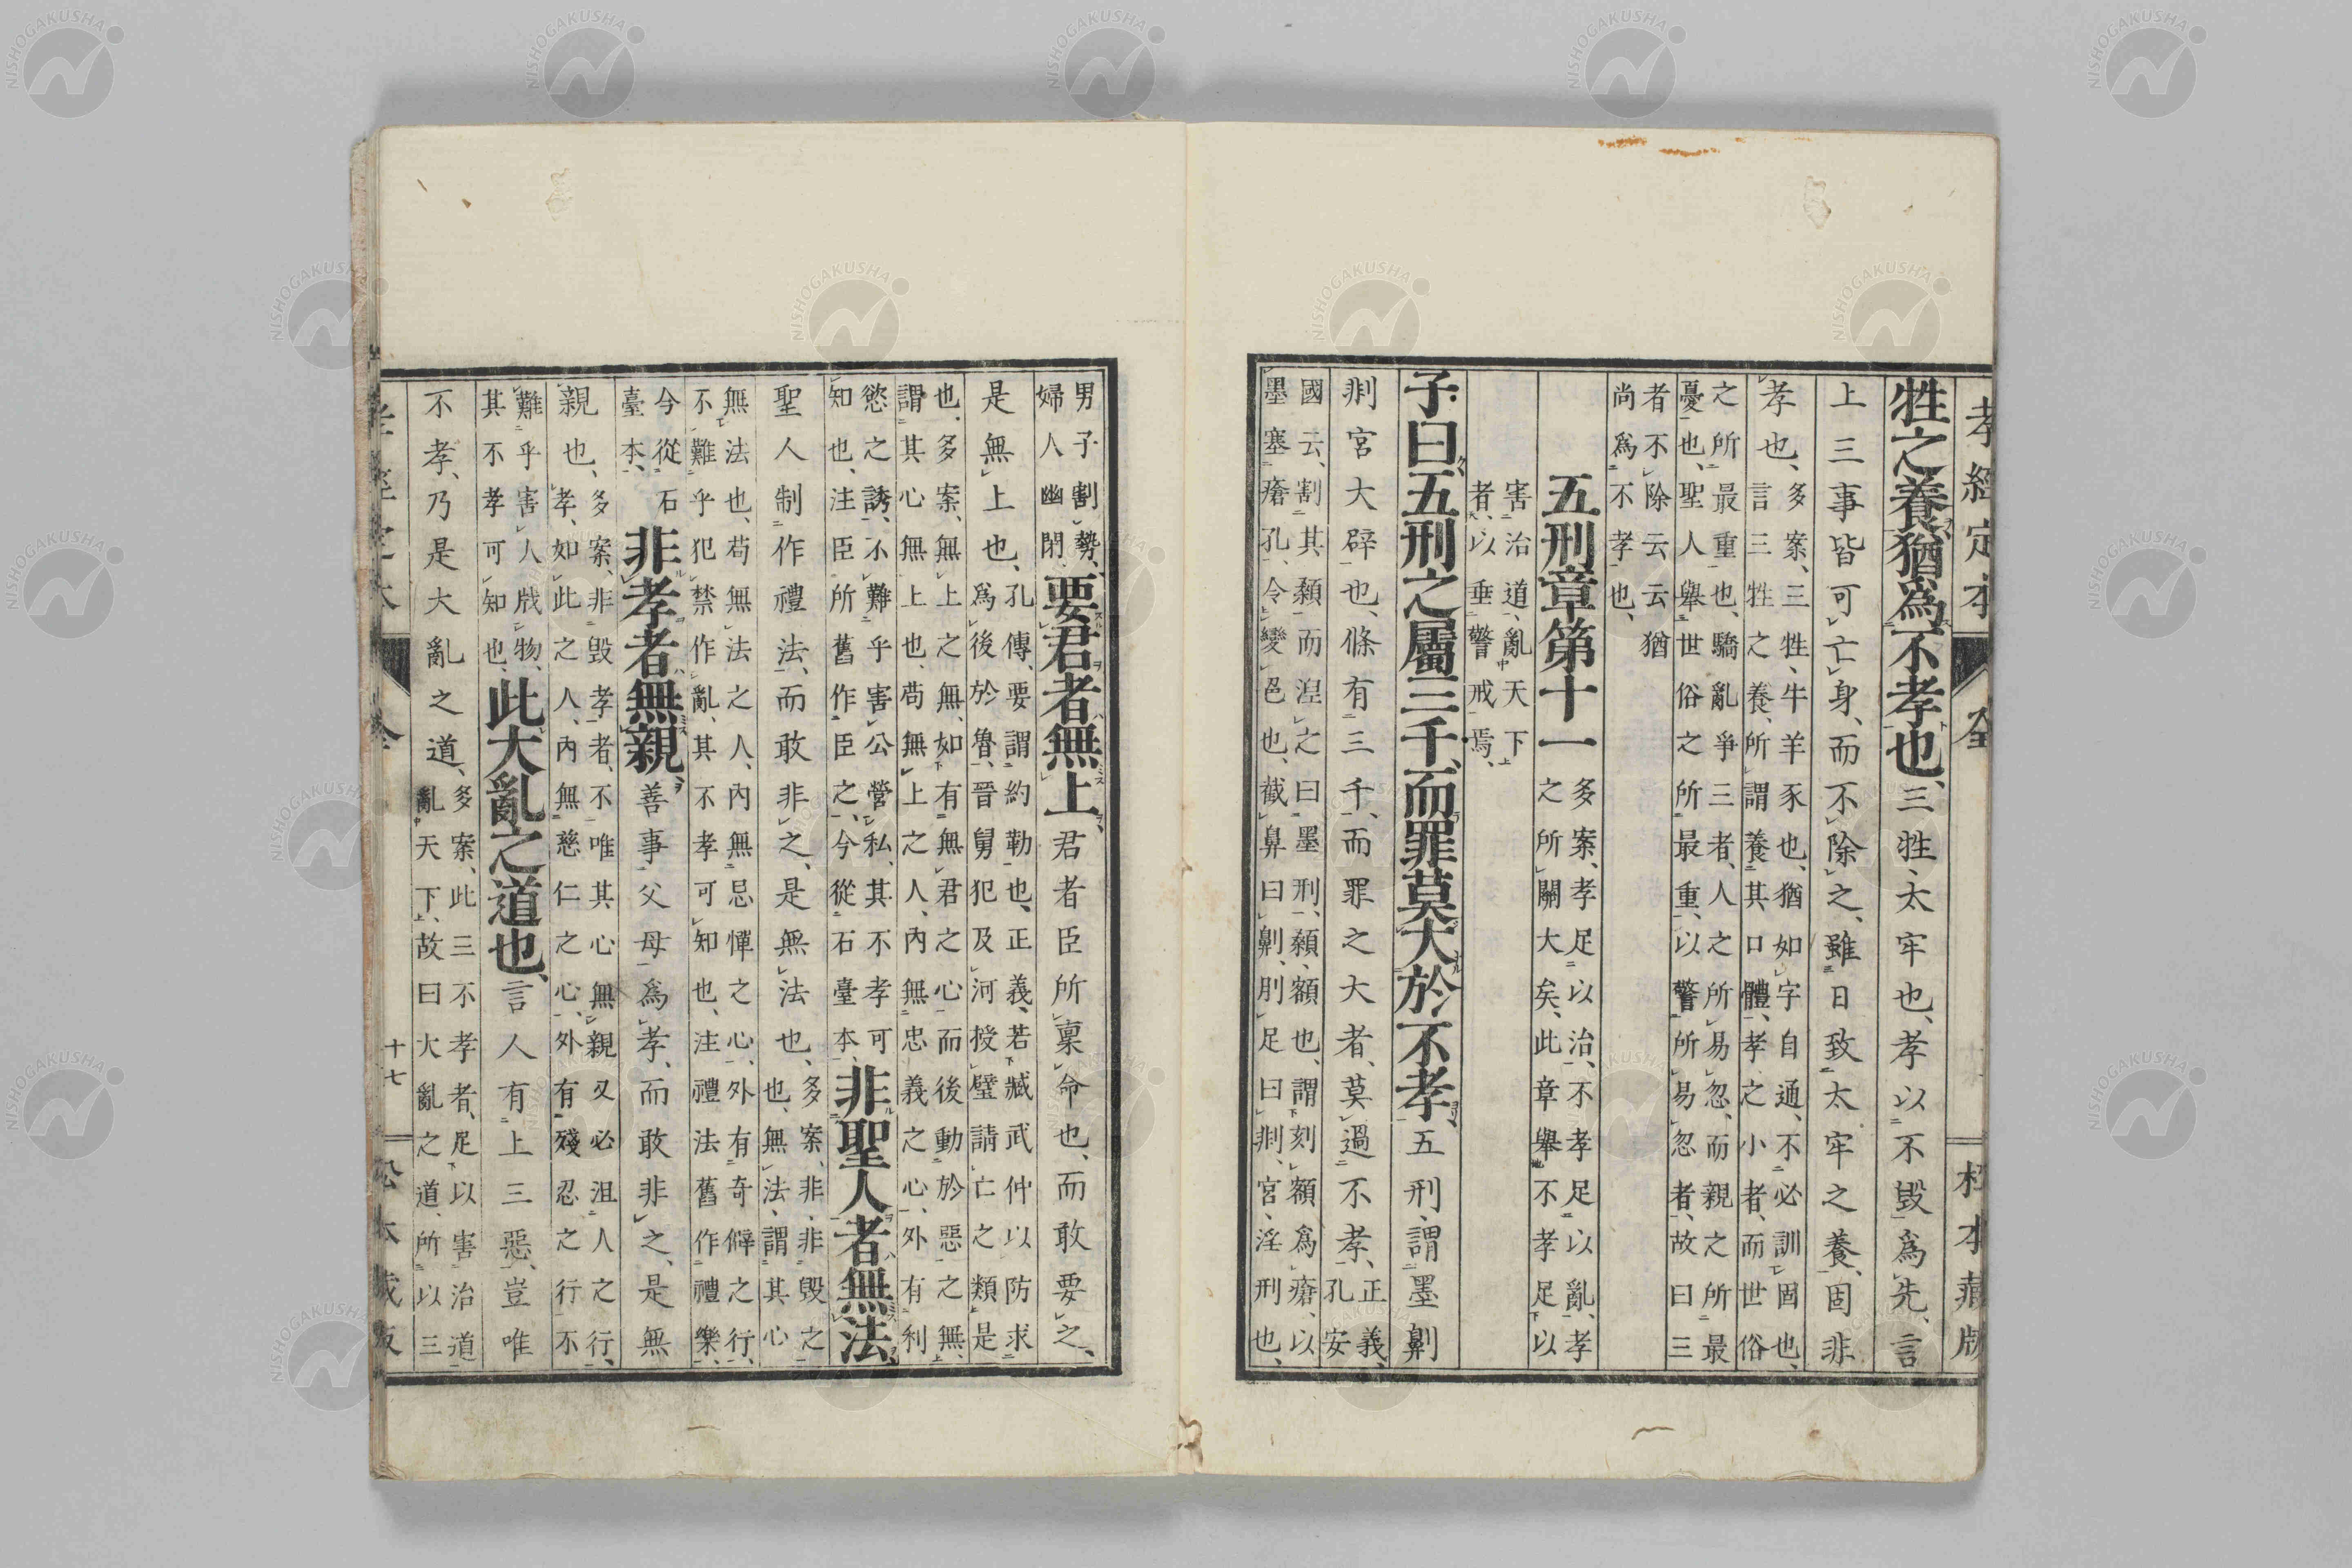 孝經定本 全 松本藏版
牲之養猶爲不孝也、三牲、太牢也、孝以不毀爲先、言
上三事皆可亡身、而不除之、雖日致太牢之養、固非
孝也、
多案、三牲、牛羊豕也、猶如字自通、不必訓固也、
言三牲之養、所謂養其口體、孝之小者、而世俗
之所最重也、驕亂爭三者、人之所易忽、而親之所最
憂也、聖人舉世俗之所最重、以警所易忽者、故曰三
者不除云云猶
尚爲不孝也、
五刑章第十一
多案、孝足以治、不孝足以亂、孝
之所關大矣、此章舉不孝足以
害治道、亂天下
者、以垂警戒焉、
子曰五刑之屬三千、而罪莫大於不孝、五刑、謂墨劓
剕宮大辟也、條有三千、而罪之大者、莫過不孝、
正義、
孔安
國云、割其顙而涅之曰墨刑、顙、額也、謂刻額爲瘡、以
墨塞瘡孔、令變色也、截鼻曰劓、刖足曰剕、宮、淫刑也、
男子割勢、
婦人幽閉、
要君者無上、君者臣所稟命也、而敢要之、
是無上也、
孔傳、要謂約勒也、正義、若臧武仲以防求
爲後於魯、晉舅犯及河授璧請亡之類是
也、多案、無上之無、如有無君之心而後動於惡之無、
謂其心無上也、苟無上之人、內無忠義之心、外有利
慾之誘、不難乎害公營私、其不孝可
知也、注臣所舊作臣之、今從石臺本、
非聖人者無法、
聖人制作禮法、而敢非之、是無法也、
多案、非、非毀之
也、無法、謂其心
無法也、苟無法之人、內無忌憚之心、外有奇僻之行、
不難乎犯禁作亂、其不孝可知也、注禮法舊作禮樂、
今從石
臺本、
非孝者無親、善事父母爲孝、而敢非之、是無
親也、
多案、非毀孝者、不唯其心無親、又必沮人之行、
孝、如此之人、內無慈仁之心、外有殘忍之行、不
難乎害人戕物、
其不孝可知也、
此大亂之道也、言人有上三惡、豈唯
不孝、乃是大亂之道、
多案、此三不孝者、足以害治道
亂天下、故曰大亂之道、所以三
孝經定本 全 十七 松本藏版
NISHOGAKUSHA